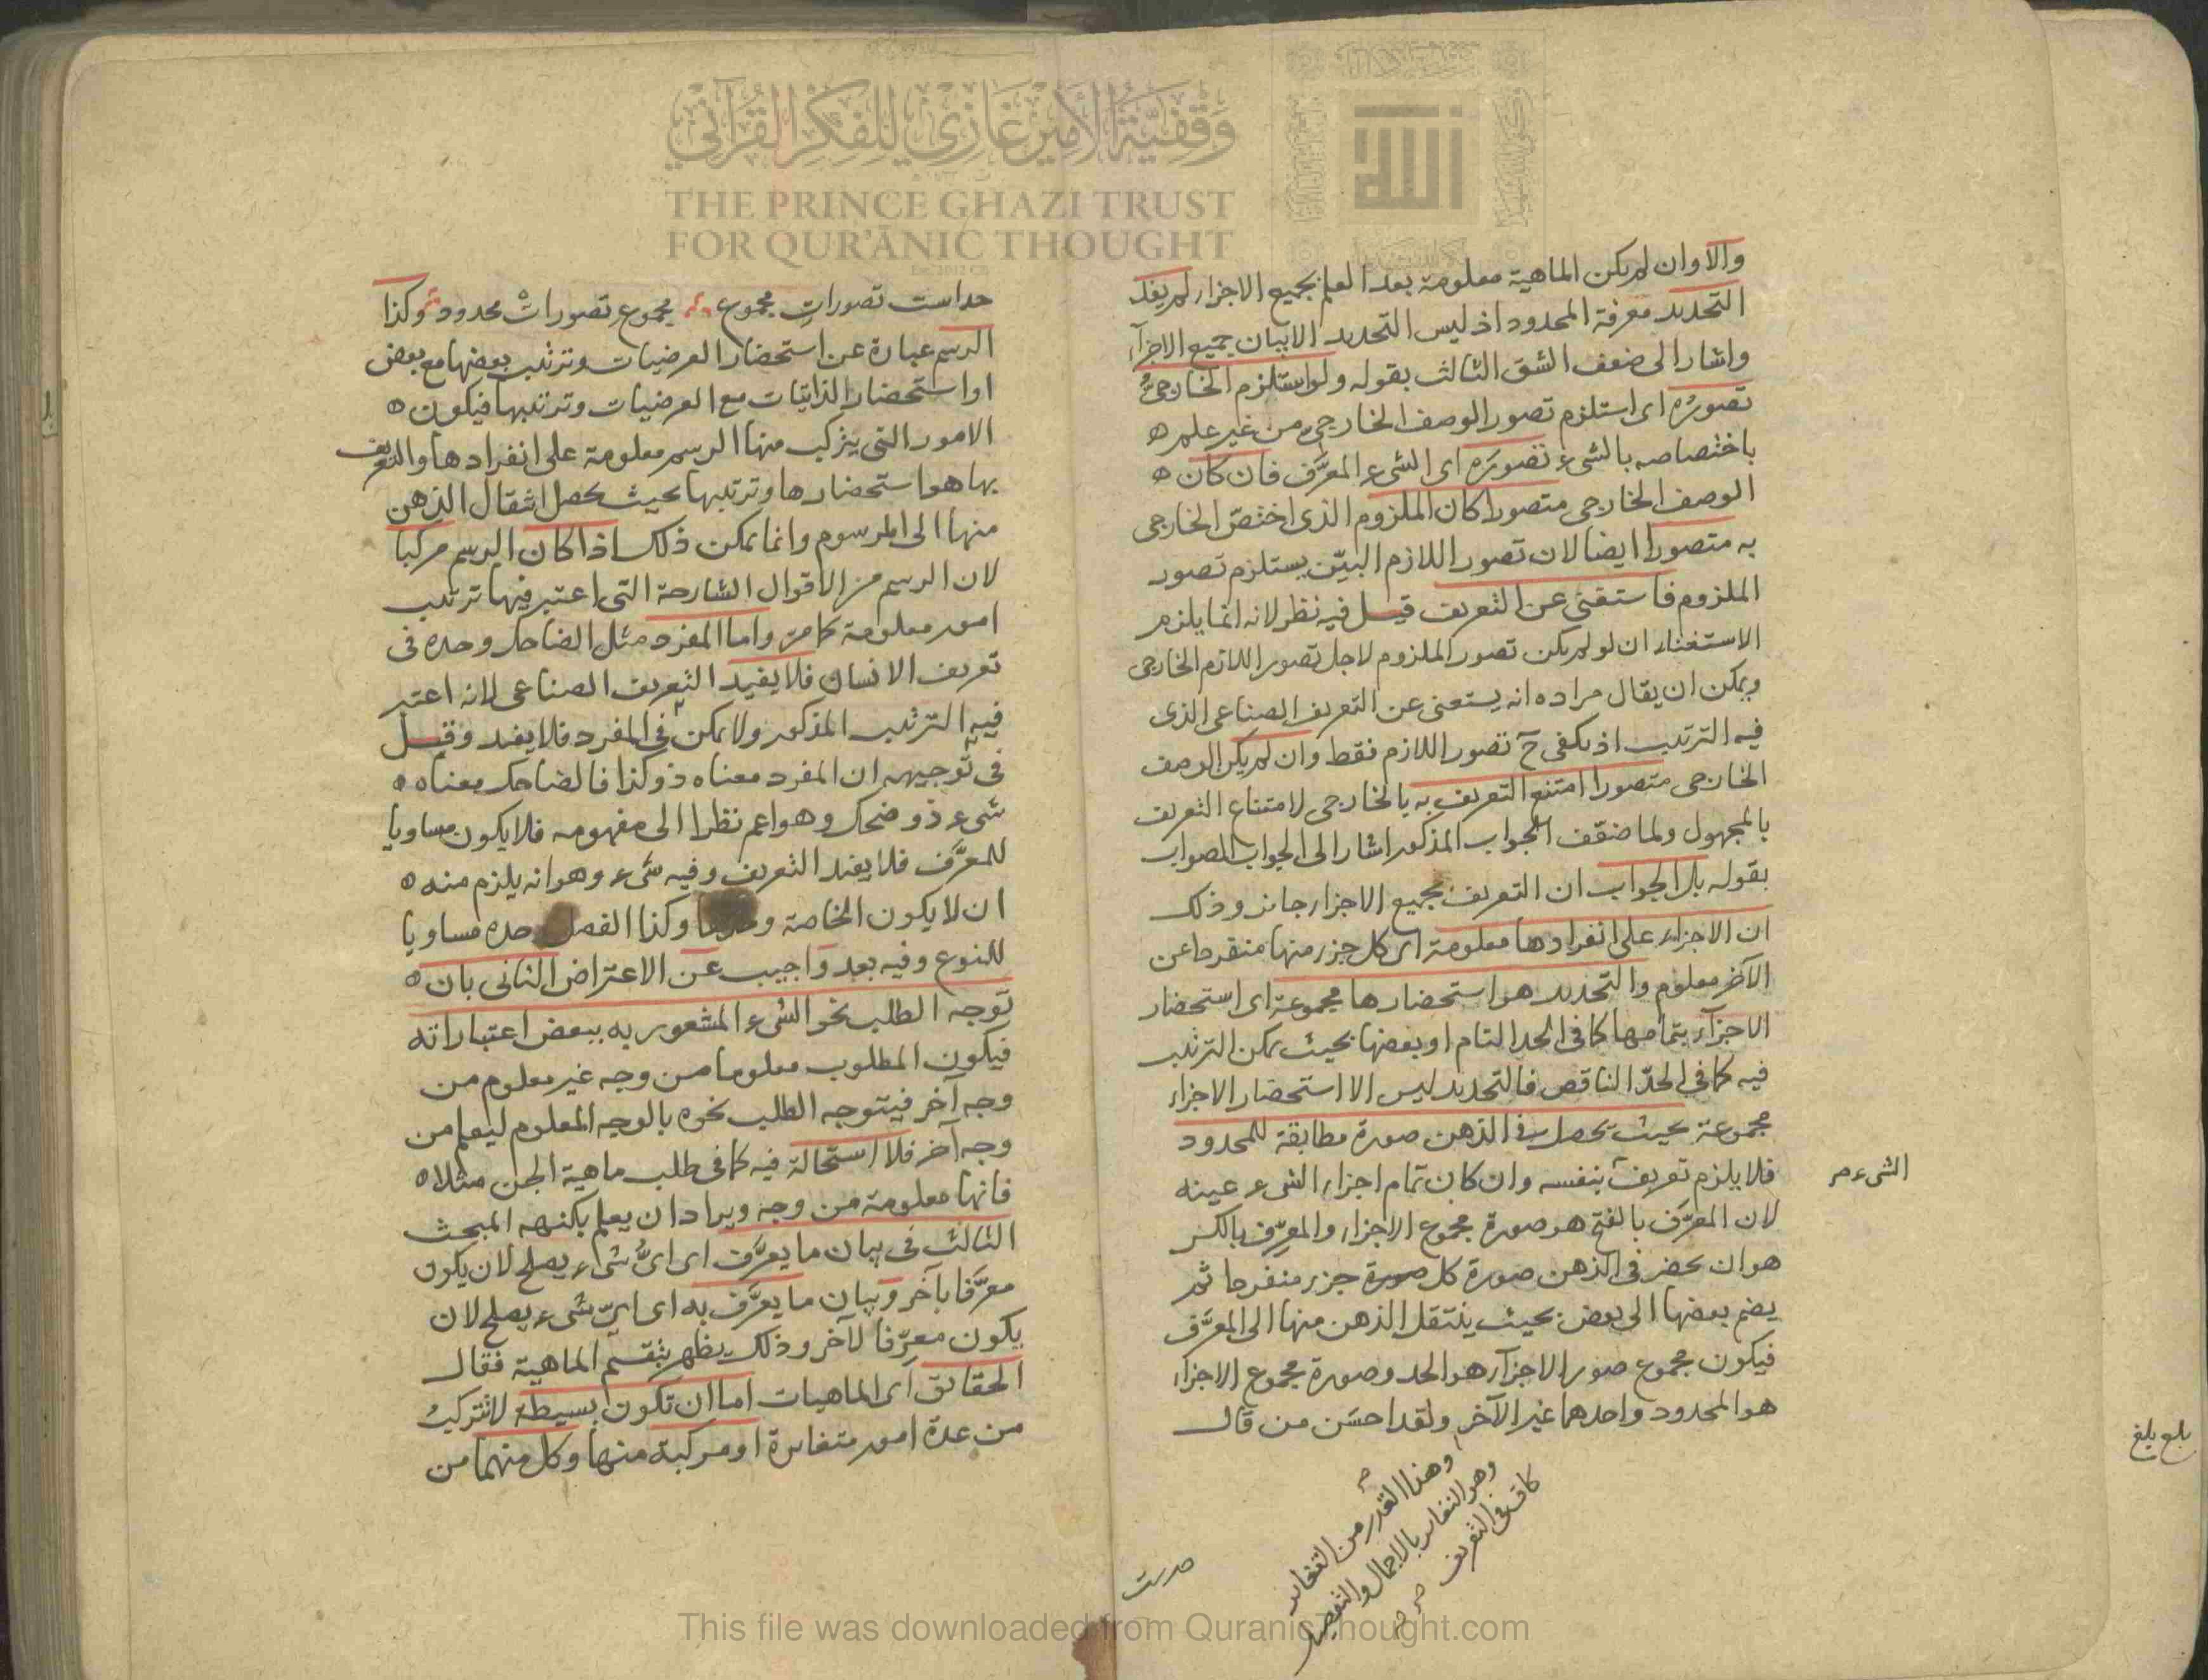 وقفية الأمير غازي للفكر القرآني
THE PRINCE GHAZI TRUST
FOR QUR'ĀNIC THOUGHT
والا وان لم يكن الماهية معلومة بعد العلم بجميع الاجزاء لم يفد
التحديد معرفة المحدود اذ ليس التحديد الا بيان جميع الاجزآء
واشار الى ضعف الشق الثالث بقوله ولو استلزم الخارجيُّ
تصوّرُه اى استلزم تصور الوصف الخارجي من غير علم ه
باختصاصه بالشىء تصورَه اى الشىء المعرَّف فان كان ه
الوصف الخارجى متصورا كان الملزوم الذى اختصّ الخارجى
به متصورا ايضا لان تصور اللازم البيّن يستلزم تصور
الملزوم فاستغنى عن التعريف قيل فيه نظر لانه انما يلزم
الاستغناء ان لو لم يكن تصور الملزوم لاجل تصور اللازم الخارجى
ويمكن ان يقال مراده انه يستغنى عن التعريف الصناعى الذى
فيه الترتيب اذ يكفى ح تصور اللازم فقط وان لم يكن الوصف
الخارجى متصورا امتنع التعريف به بالخارجى لامتناع التعريف
بالمجهول ولما ضعّف الجواب المذكور اشار الى الجواب الصواب
بقوله بل الجواب ان التعريف بجميع الاجزاء جائز وذلك
ان الاجزاء على انفرادها معلومة اى كل جزء منها منفردا عن
الآخر معلوم والتحديد هو استحضارها مجموعة اى استحضار
الاجزآء بتمامها كما فى الحد التام او بعضها بحيث يمكن الترتيب
فيه كما فى الحدّ الناقص فالتحديد ليس الا استحضار الاجزاء
مجموعة بحيث يحصل فى الذهن صورة مطابقة للمحدود
فلا يلزم تعريف بنفسه وان كان تمام اجزاء الشىء عينه
الشىء م
لان المعرَّف بالفتح هو صورة مجموع الاجزاء والمعرِّف بالكسر
هو ان يحضر فى الذهن صورة كل صورة جزء منفردا ثم
يضم بعضها الى بعض بحيث ينتقل الذهن منها الى المعرَّف
فيكون مجموع صور الاجزآء هو الحد وصورة مجموع الاجزآء
هو المحدود واحدهما غير الآخر ولقد احسَن من قال
وهذا القدر من التغاير
وهو التغاير بالاجمال والتفصيل
كاف فى التعريف
بلغ بلغ
حد است تصوراتِ مجموع مجموع تصورات محدود وكذا
الرسم عبارة عن استحضار العرضيات وترتيب بعضها مع بعض
او استحضار الذاتيات مع العرضيات وترتيبها فيكون ه
الامور التى يتركب منها الرسم معلومة على انفرادها والتعريف
بها هو استحضارها وترتيبها بحيث يحصل انتقال الذهن
منها الى المرسوم وانما يمكن ذلك اذا كان الرسم مركبا
لان الرسم من الاقوال الشارحة التى اعتبر فيها ترتيب
امور معلومة كما مرّ واما المفرد مثل الضاحك وحده فى
تعريف الانسان فلا يفيد التعريف الصناعى لانه اعتبر
فيه الترتيب المذكور ولا يمكن فى المفرد فلا يفيد وقيل
فى توجيهه ان المفرد معناه ذو كذا فالضاحك معناه ه
شىء ذو ضحك وهو اعم نظرا الى مفهومه فلا يكون مساويا
للمعرَّف فلا يفيد التعريف وفيه شىء وهو انه يلزم منه ه
ان لا يكون الخاصة وحدها وكذا الفصل وحده مساويا
للنوع وفيه بعد واجيب عن الاعتراض الثانى بان ه
توجه الطلب نحو الشىء المشعور به ببعض اعتباراته
فيكون المطلوب معلوما من وجه غير معلوم من
وجه آخر فيتوجه الطلب نحوه بالوجه المعلوم ليعلم من
وجه آخر فلا استحالة فيه كما فى طلب ماهية الجن مثلا ه
فانها معلومة من وجه ويراد ان يعلم بكنهه المبحث
الثالث فى بيان ما يعرَّف اى اىُّ شىء يصلح لان يكون
معرَّفا بآخر وبيان ما يعرَّف به اى اىّ شىء يصلح لان
يكون معرِّفا لآخر وذلك يظهر بتقسيم الماهية فقال
الحقائق اى الماهيات اما ان تكون بسيطة لا تتركبُ
من عدة امور متغايرة او مركبة منها وكل منهما من
This file was downloaded from QuranicThought.com